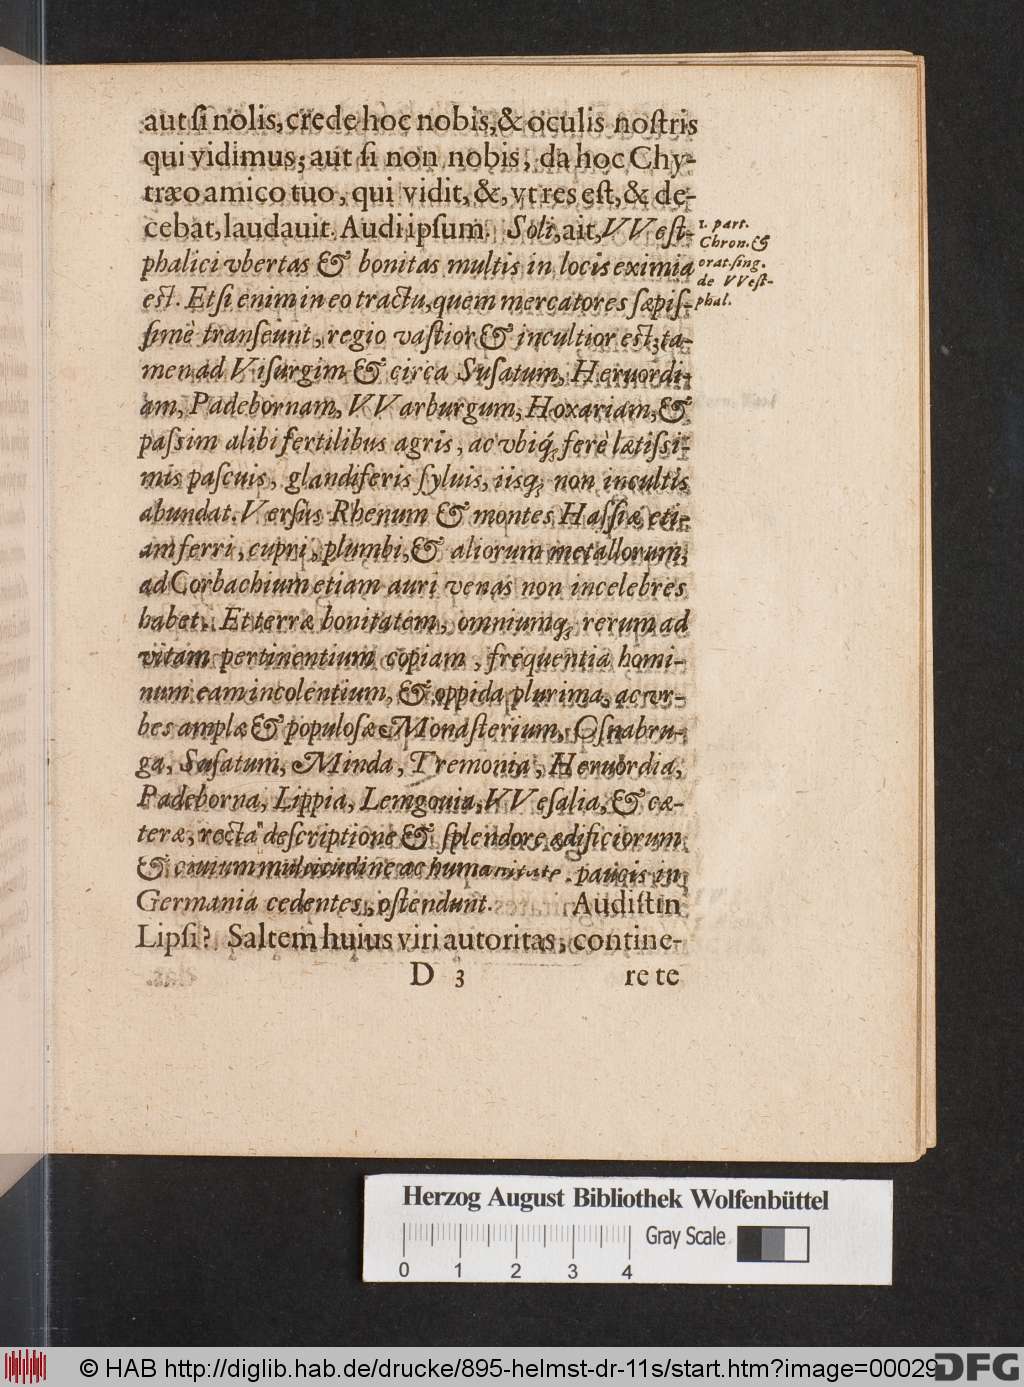 aut ſi nolis, crede hoc nobis, & oculis noſtris
qui vidimus; aut ſi non nobis, da hoc Chy-
træo amico tuo, qui vidit, &, vt res eſt, & de-
cebat, laudauit. Audi ipſum. Soli, ait, VVeſt-
phalici vbertas & bonitas multis in locis eximia
eſt. Etſi enim in eo tractu, quem mercatores ſæpiſ-
ſimè tranſeunt, regio vaſtior & incultior eſt; ta-
men ad Viſurgim & circa Suſatum, Heruordi-
am, Padebornam, VVarburgum, Hoxariam, &
paſsim alibi fertilibus agris, ac vbiq́; ferè lætiſsi-
mis paſcuis, glandiferis ſyluis, iisq́; non incultis
abundat. Verſus Rhenum & montes Haſſiæ eti-
am ferri, cupri, plumbi, & aliorum metallorum,
ad Corbachium etiam auri venas non incelebres
habet. Et terræ bonitatem, omniumq́; rerum ad
vitam pertinentium copiam, frequentia homi-
num eam incolentium, & oppida plurima, ac vr-
bes amplæ & populoſæ Monaſterium, Oſnabru-
ga, Suſatum, Minda, Tremonia, Heruordia,
Padeborna, Lippia, Lemgouia, VVeſalia, & cæ-
teræ, recta deſcriptione & ſplendore ædificiorum
& ciuium multitudine ac humanitate paucis in
Germania cedentes, oſtendunt. Audiſtin
Lipſi? Saltem huius viri autoritas, contine-
D 3 re te
1. part.
Chron. &
orat. ſing.
de VVeſt-
phal.
Herzog August Bibliothek Wolfenbüttel
Gray Scale
0 1 2 3 4
© HAB http://diglib.hab.de/drucke/895-helmst-dr-11s/start.htm?image=00029
DFG